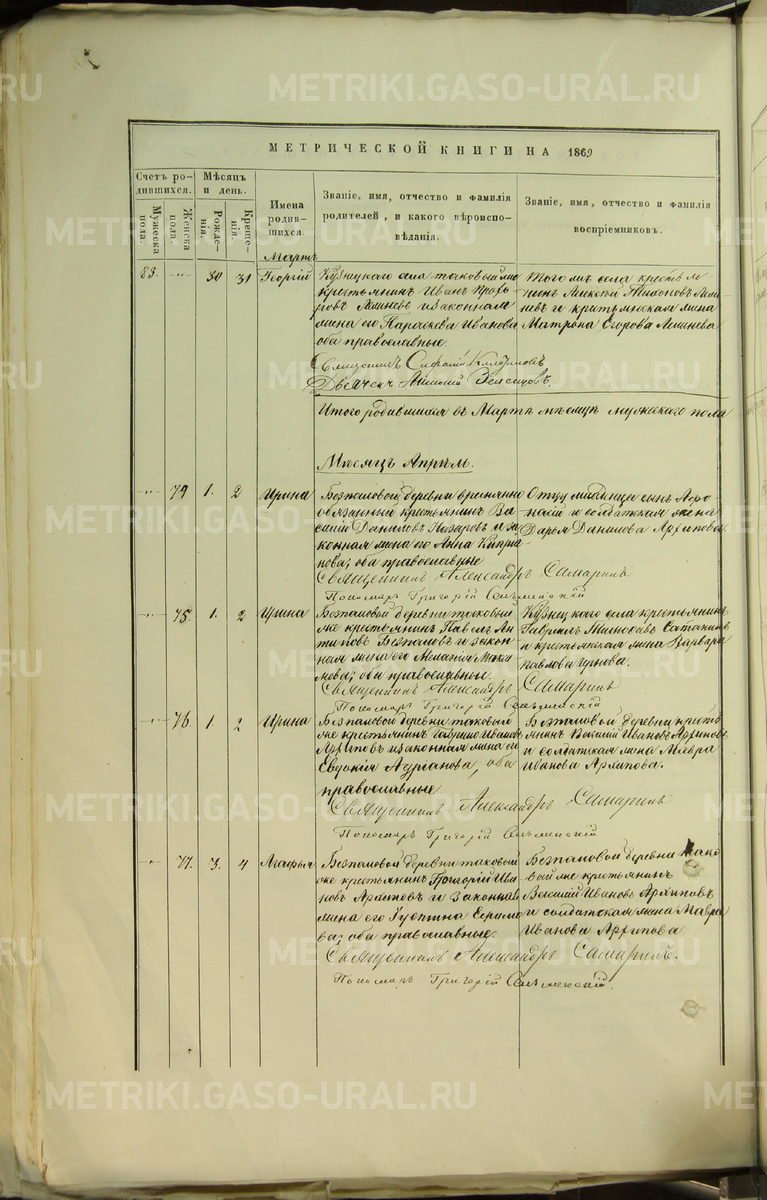 METRIKI.GASO-URAL.RU
МЕТРИЧЕСКОЙ КНИГИ НА 1869
Счетъ родившихся.
Мужеска пола.
Женска пола.
Мѣсяцъ и день.
Рожденія.
Крещенія.
Имена родившихся.
Званіе, имя, отчество и фамилія
родителей, и какого вѣроиспо-
вѣданія.
Званіе, имя, отчество и фамилія
воспріемниковъ.
Мартъ
83. 30 31 Георгій
Кузнецкаго села таковый же
крестьянинъ Иванъ
и законная
жена его Параскева Иванова
оба православные.
Того же села крестья-
нинъ Алексѣй
и крестьянская жена
Матрона Егорова
Священникъ
Дьячекъ
Итого родившихся въ Мартѣ мѣсяцѣ мужескаго пола
Мѣсяцъ Апрѣль.
1. 2 Ирина
Безпаловой деревни временно
обязанный крестьянинъ Ва-
силій Даниловъ Назаровъ и за-
конная жена его Анна Кипрія-
нова; оба православные
Отца младенца сынъ Афо-
насій и солдатская жена
Дарья Данилова Архипова.
Священникъ Александръ Самаринъ
Пономарь Григорій
75. 1. 2 Ирина
Безпаловой деревни таковый
же крестьянинъ Павелъ Ан-
типовъ Безпаловъ и закон-
ная жена его Меланія
оба православные.
Кузнецкаго села крестьянинъ
Гавріилъ
и крестьянская жена Варвара
Павлова
Священникъ Александръ Самаринъ
Пономарь Григорій
76. 1. 2 Ирина
Безпаловой деревни таковый
же крестьянинъ Гаврило Ивановъ
Архиповъ и законная жена его
Евдокія оба
православные
Безпаловой деревни кресть-
янинъ Василій Ивановъ Архиповъ
и солдатская жена Мавра
Иванова Архипова.
Священникъ Александръ Самаринъ
Пономарь Григорій
77. 3. 4 Агафья
Безпаловой деревни таковый
же крестьянинъ Григорій Ива-
новъ Архиповъ и законная
жена его
оба православные.
Безпаловой деревни тако-
вый же крестьянинъ
Василій Ивановъ Архиповъ
и солдатская жена Мавра
Иванова Архипова
Священникъ Александръ Самаринъ.
Пономарь Григорій